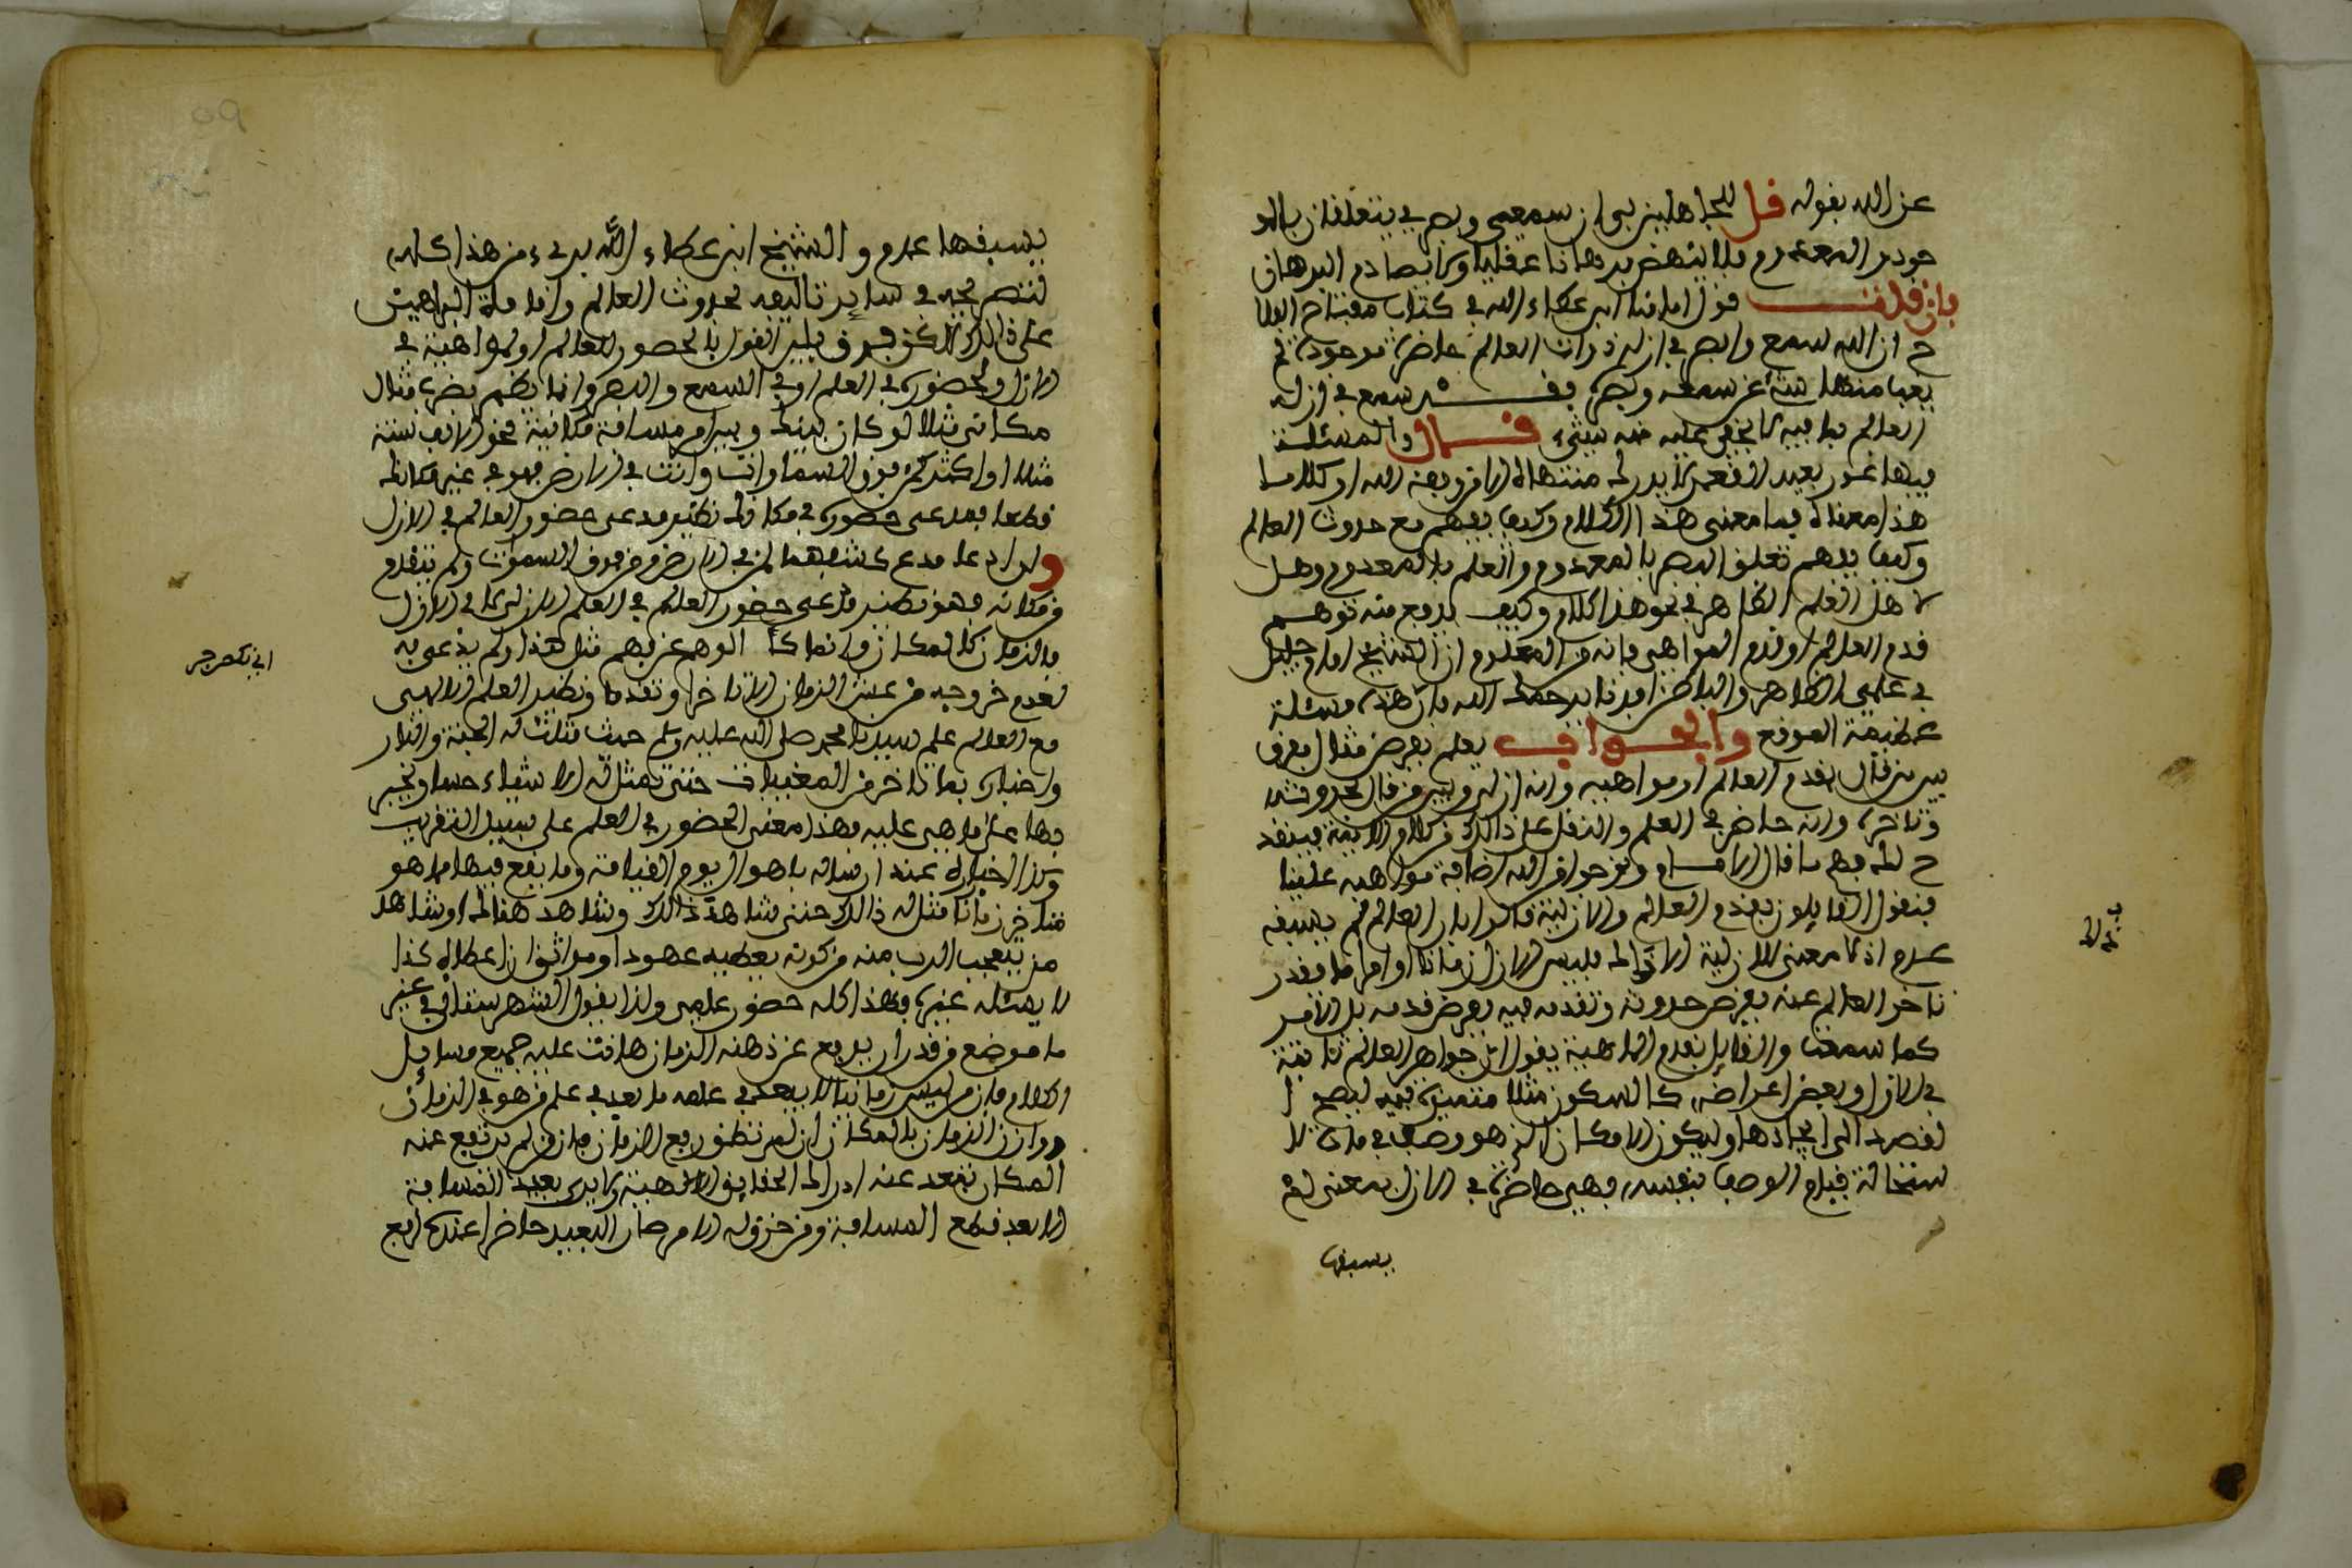 عن الله بقوله قل للجاهلين بي ان سمعي وبصري يتعلقان بالمو
جود والمعدوم فلا ينهض برهانا عقليا ولا يصادم البرهان
فان قلت قول امامنا ابن عطاء الله في كتاب مفتاح الفلا
ح ان الله سمع وابصر في ازله ذوات العالم حاضرة موجودة لم
يغب منها شيء عن سمعه وبصره فقد سمع في ازله
العالم بما فيه لا يخفى عليه منه شيء قال والمسئلة
فيها غور بعيد القعر لا يدرك منتهاه الا من وفقه الله او كلاما
هذا معناه فما معنى هذا الكلام وكيف يفهم مع حدوث العالم
وكيف يفهم تعلق البصر بالمعدوم والعلم بالمعدوم وهل
لاهل العلم الظاهر في نحو هذا كلام وكيف يدفع منه توهم
قدم العالم او قدم المواهي فانه من المعلوم ان الشيخ امام جليل
في علمي الظاهر والباطن افدنا يرحمك الله فان هذه مسئلة
عظيمة الموقع والجواب يعلم بفرض مثال يفرق
بين من قال بقدم العالم او مواهيه وانه ازلي وبين من قال بحدوثه
وتاخره وانه حاضر في العلم والنقل على ذالك من كلام الايمة فينقد
ح لك فهم ما قال الامام ونحو حوافر الله اضافة مواهبه علينا
فنقول القايلون بقدم العالم والازلية قالوا بان العالم لم يسبقه
عدم اذ لا معنى للازلية الا ذالك فليس الازل زمانا او امرا ما فقدر
تاخر العالم عنه بفرض حدوثه وتقدمه فيه بفرض قدمه بل الامر
كما سمعت والقايل بقدم الماهية يقول ان جواهر العالم ثابتة
في الازل وبعض اعراضه كالسكون مثلا متميزة فيه ليصح ا
لقصد الى ايجادها وليكون الامكان الذي هو وصف في مادة لا
ستحالة قيام الوصف بنفسه فهي حاضرة في الازل بمعنى لم
يسبقها
ب
ذالك
يسبقها عدم والشيخ ابن عطاء الله بريء من هذا كله
لتصريحه في ساير تاليفه بحدوث العالم واقامة البراهين
على ذالك لاكن فرق بين القول بالحضور للعالم او للماهية في
الازل والحضور في العلم او في السمع والبصر وانما يظهر بضرب مثال
مكاني مثلا لو كان بينك وبين امر مسافة مكانية نحو الالف سنة
مثلا او اكثر كمن فوق السماوات وانت في الارض فهو في غير مكانك
قطعا فمدعى حضوره في مكانك نظير مدعى حضور العالم في الازل
ولو ادعا مدع كشفهما لمن في الارض من فوق السموات ولم يتقدم
من مكانه فهو نظير مدعى حضور العالم في العلم الازلي لا في الازل
فالزمان كالمكان وانما كا الوهم عن فهم مثل هذا ولم يذعن به
لعدم خروجه من عش الزمان الا تاخرا وتقدما ونظير العلم الالهي
مع العالم علم سيدنا محمد صلى الله عليه وسلم حيث مثلت له الجنة والنار
واخباره بما تاخر من المغيبات حتى تمثل له الاشياء حسا ويخبر
بها على ما هي عليه فهذا معنى الحضور في العلم على سبيل التقريب
وكذا اخباره عند ارساله باهوال يوم القيامة وما يقع فيها مما هو
متاخر زمانا مثل له ذالك حتى شاهد ذالك وشاهد هنالك او شاهد
من يتعجب الرب منه من كونه يعطيه عهودا ومواثق ان اعطاه كذا
لا يسئله غيره فهذا كله حضور علمي ولذا يقول الشهرستاني في غير
ما موضع من قدر ان يدفع عن ذهنه الزمان هانت عليه جميع مسايل
الكلام فان من ليس زمانيا لا يبعد في علمه ما بعد في علم من هو في الزمان
ووازن الزمان بالمكان ان لم تنظر رفع الزمان فان من لم يرتفع عنه
المكان تبعد عنه ادراك الحقايق الالهية ولا يرى بعيد المسافة
الا بعد قطع المسافة ومن خرق له الامر صار البعيد حاضرا عنده ارفع